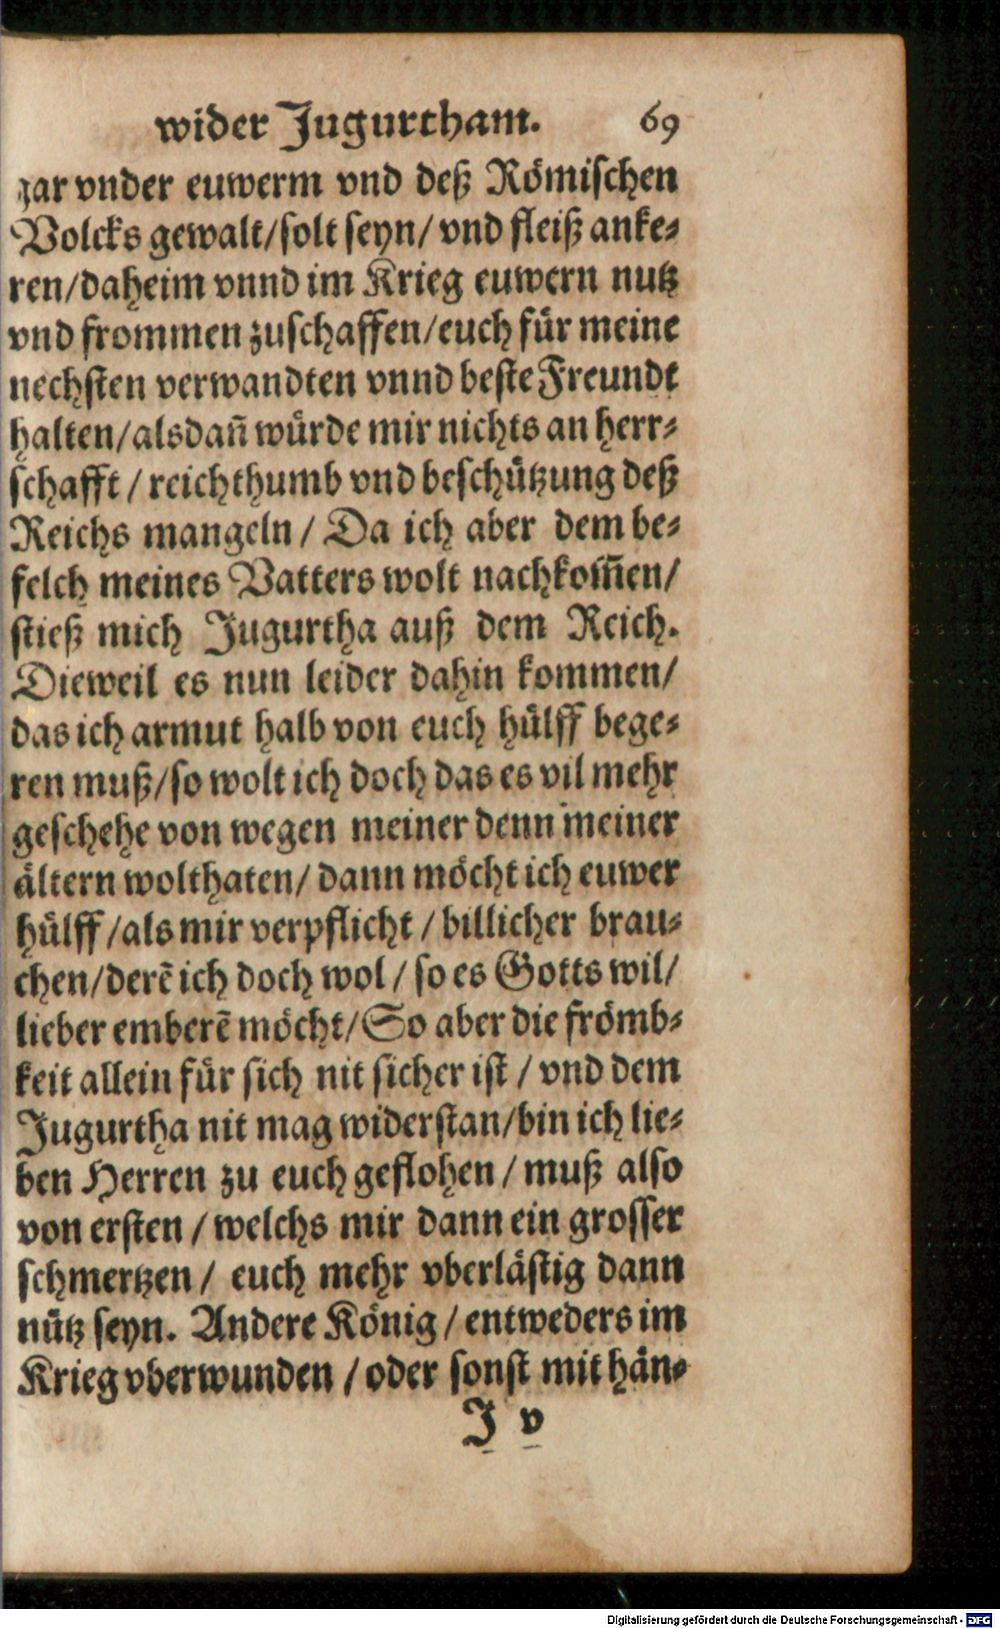 wider Jugurtham. 69
gar vnder euwerm vnd deß Römischen
Volcks gewalt/solt seyn/ vnd fleiß anke-
ren/daheim vnnd im Krieg euwern nutz
vnd frommen zuschaffen/euch für meine
nechsten verwandten vnnd beste Freundt
halten/alsdañ würde mir nichts an herr-
schafft / reichthumb vnd beschützung deß
Reichs mangeln / Da ich aber dem be-
felch meines Vatters wolt nachkom̃en/
stieß mich Jugurtha auß dem Reich.
Dieweil es nun leider dahin kommen/
das ich armut halb von euch hülff bege-
ren muß/so wolt ich doch das es vil mehr
geschehe von wegen meiner denn meiner
ältern wolthaten/ dann möcht ich euwer
hülff /als mir verpflicht / billicher brau-
chen/derẽ ich doch wol / so es Gotts wil/
lieber emberẽ möcht/ So aber die frömb-
keit allein für sich nit sicher ist / vnd dem
Jugurtha nit mag widerstan/bin ich lie-
ben Herren zu euch geflohen / muß also
von ersten / welchs mir dann ein grosser
schmertzen / euch mehr vberlästig dann
nütz seyn. Andere König / entweders im
Krieg vberwunden / oder sonst mit hän-
J v
Digitalisierung gefördert durch die Deutsche Forschungsgemeinschaft - DFG